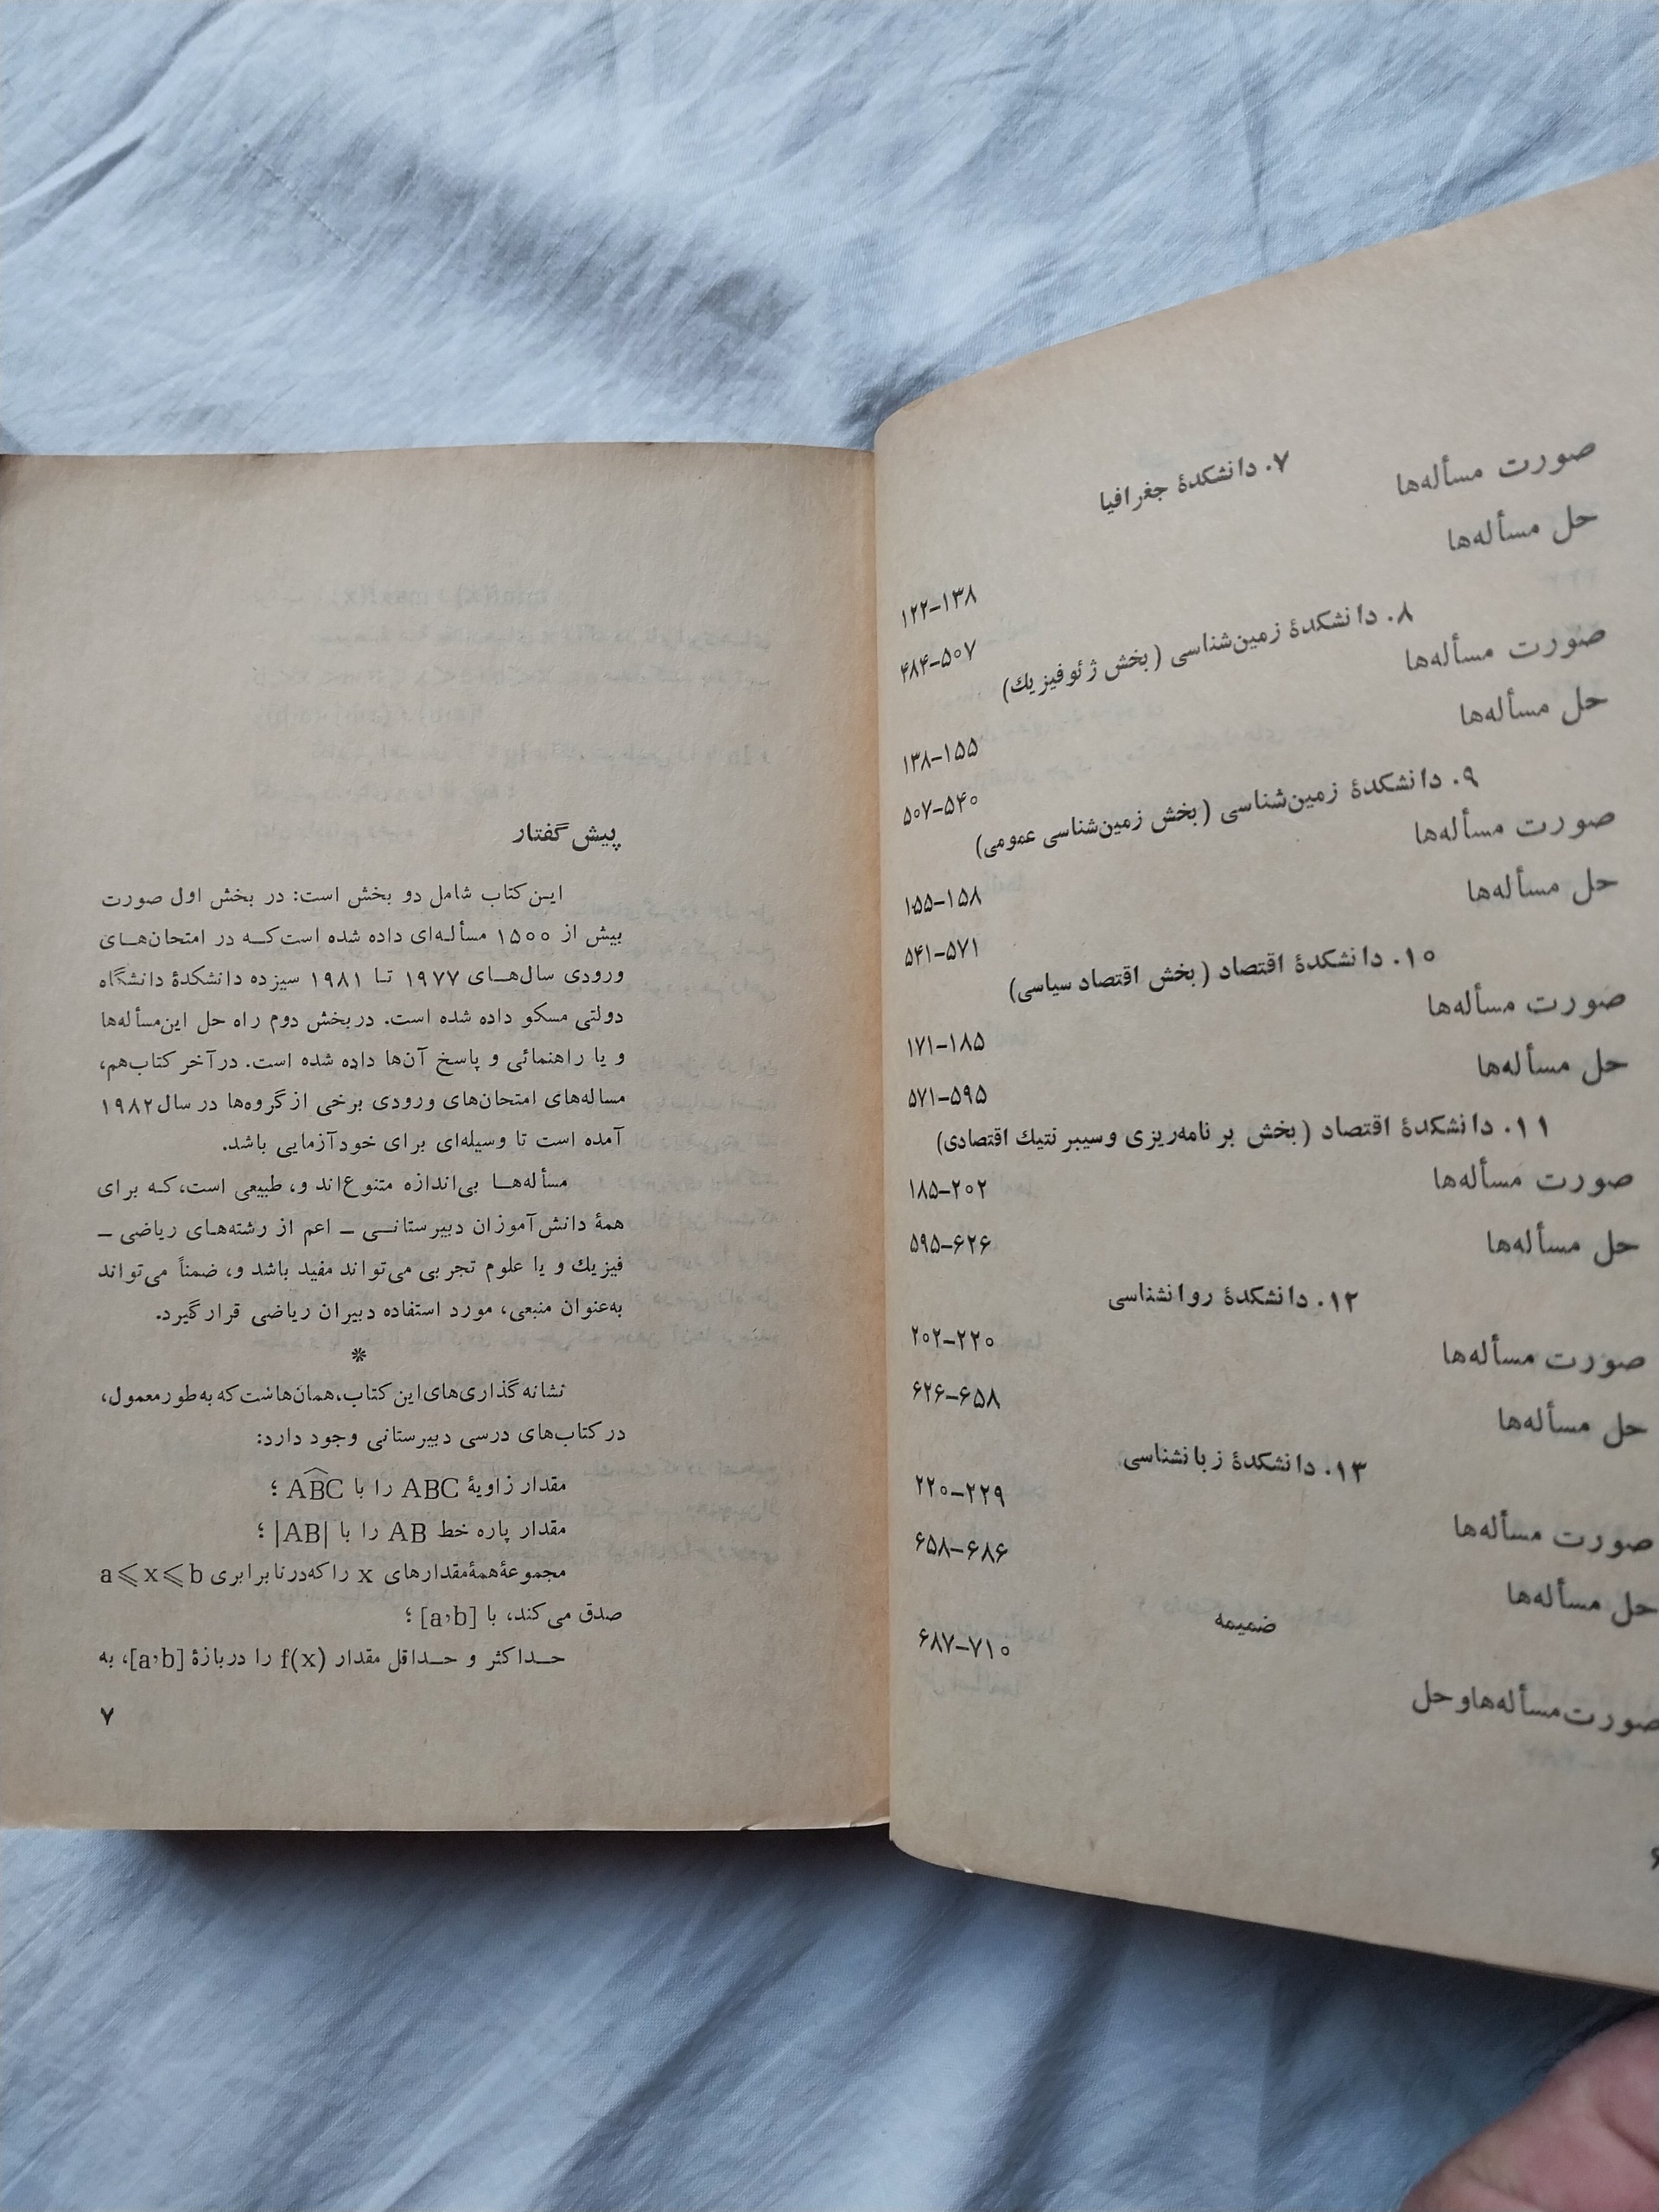 ۷. دانشکدهٔ جغرافیا
صورت مسأله‌ها ۱۲۲–۱۳۸
حل مسأله‌ها ۴۸۴–۵۰۷
۸. دانشکدهٔ زمین‌شناسی (بخش ژئوفیزیك)
صورت مسأله‌ها ۱۳۸–۱۵۵
حل مسأله‌ها ۵۰۷–۵۴۰
۹. دانشکدهٔ زمین‌شناسی (بخش زمین‌شناسی عمومی)
صورت مسأله‌ها ۱۵۵–۱۵۸
حل مسأله‌ها ۵۴۱–۵۷۱
۱۰. دانشکدهٔ اقتصاد (بخش اقتصاد سیاسی)
صورت مسأله‌ها ۱۷۱–۱۸۵
حل مسأله‌ها ۵۷۱–۵۹۵
۱۱. دانشکدهٔ اقتصاد (بخش برنامه‌ریزی وسیبرنتیك اقتصادی)
صورت مسأله‌ها ۱۸۵–۲۰۲
حل مسأله‌ها ۵۹۵–۶۲۶
۱۲. دانشکدهٔ روانشناسی
صورت مسأله‌ها ۲۰۲–۲۲۰
حل مسأله‌ها ۶۲۶–۶۵۸
۱۳. دانشکدهٔ زبانشناسی
صورت مسأله‌ها ۲۲۰–۲۲۹
حل مسأله‌ها ۶۵۸–۶۸۶
ضمیمه
صورت‌مسأله‌هاوحل ۶۸۷–۷۱۰
۶
پیش‌گفتار
این‌کتاب شامل دو بخش است: در بخش اول صورت
بیش از ۱۵۰۰ مسأله‌ای داده شده است‌که در امتحان‌های
ورودی سال‌های ۱۹۷۷ تا ۱۹۸۱ سیزده دانشکدهٔ دانشگاه
دولتی مسکو داده شده است. دربخش دوم راه حل این‌مسأله‌ها
و یا راهنمائی و پاسخ آن‌ها داده شده است. درآخر کتاب‌هم،
مساله‌های امتحان‌های ورودی برخی ازگروه‌ها در سال ۱۹۸۲
آمده است تا وسیله‌ای برای خودآزمایی باشد.
مسأله‌ها بی‌اندازه متنوع‌اند و، طبیعی است،که برای
همهٔ دانش‌آموزان دبیرستانی – اعم از رشته‌های ریاضی –
فیزیك و یا علوم تجربی می‌تواند مفید باشد و، ضمناً می‌تواند
به‌عنوان منبعی، مورد استفاده دبیران ریاضی قرارگیرد.
*
نشانه‌گذاری‌های‌این‌کتاب،همان‌هاشت‌که‌به‌طورمعمول،
در کتاب‌های درسی دبیرستانی وجود دارد:
مقدار زاویهٔ ABC را با A͡BC ؛
مقدار پاره خط AB را با |AB| ؛
مجموعهٔ‌همهٔ‌مقدارهای x را که‌درنابرابری a⩽x⩽b
صدق می‌کند، با [a,b] ؛
حداکثر و حداقل مقدار f(x) را دربازهٔ [a,b]، به
۷